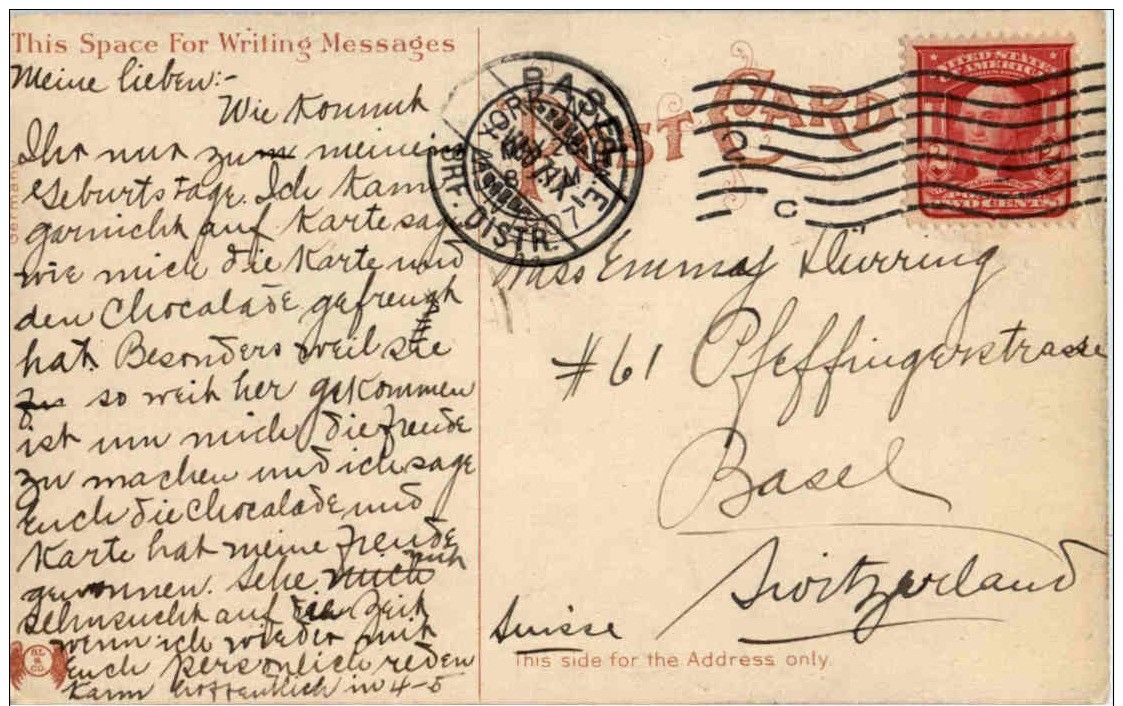 This Space For Writing Messages
Meine lieben:-
Wie kommt
Ihr nur zu meinem
Geburtstage. Ich kann
garnicht auf Karte sagen
wie mich die Karte und
den Chocalade gefreugt
hat. Besonders weil sie
so weit her gekommen
ist um mich die freude
zu machen und ich sage
Euch die Chocalade und
Karte hat meine Freude
gewonnen. Sehe mit
Sehnsucht auf die Zeit
wenn ich wieder mit
Euch persönlich reden
kann hoffentlich in 4-5
Germany
POST CARD
BASEL
BRF. DISTR.
YORK
07
C
UNITED STATES
OF AMERICA
2 2
TWO CENTS
Miss Emma Dürring
#61 Pfeffingerstrasse
Basel
Switzerland
Suisse
This side for the Address only.